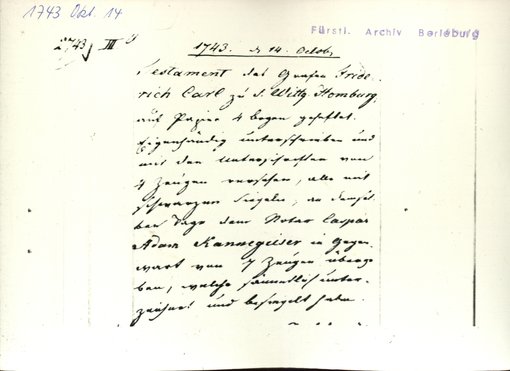 1743 Okt. 14
Fürstl. Archiv Berleburg
2743 III
1743. d 14. Octob.
Testament des Grafen Fride
rich Carl zu S. Wittg. Homburg,
auf Papier 4 bogen geheftet.
Eigenhändig unterschrieben und
mit den Unterschriften von
4 Zeugen versehen, alle mit
schwarzem Siegel, an demsel
ben Tage dem Notar Caspar
Adam Kannegieser in Gegen
wart von 7 Zeugen überge
ben, welche sämmtlich unter-
zeichnet und besiegelt haben.